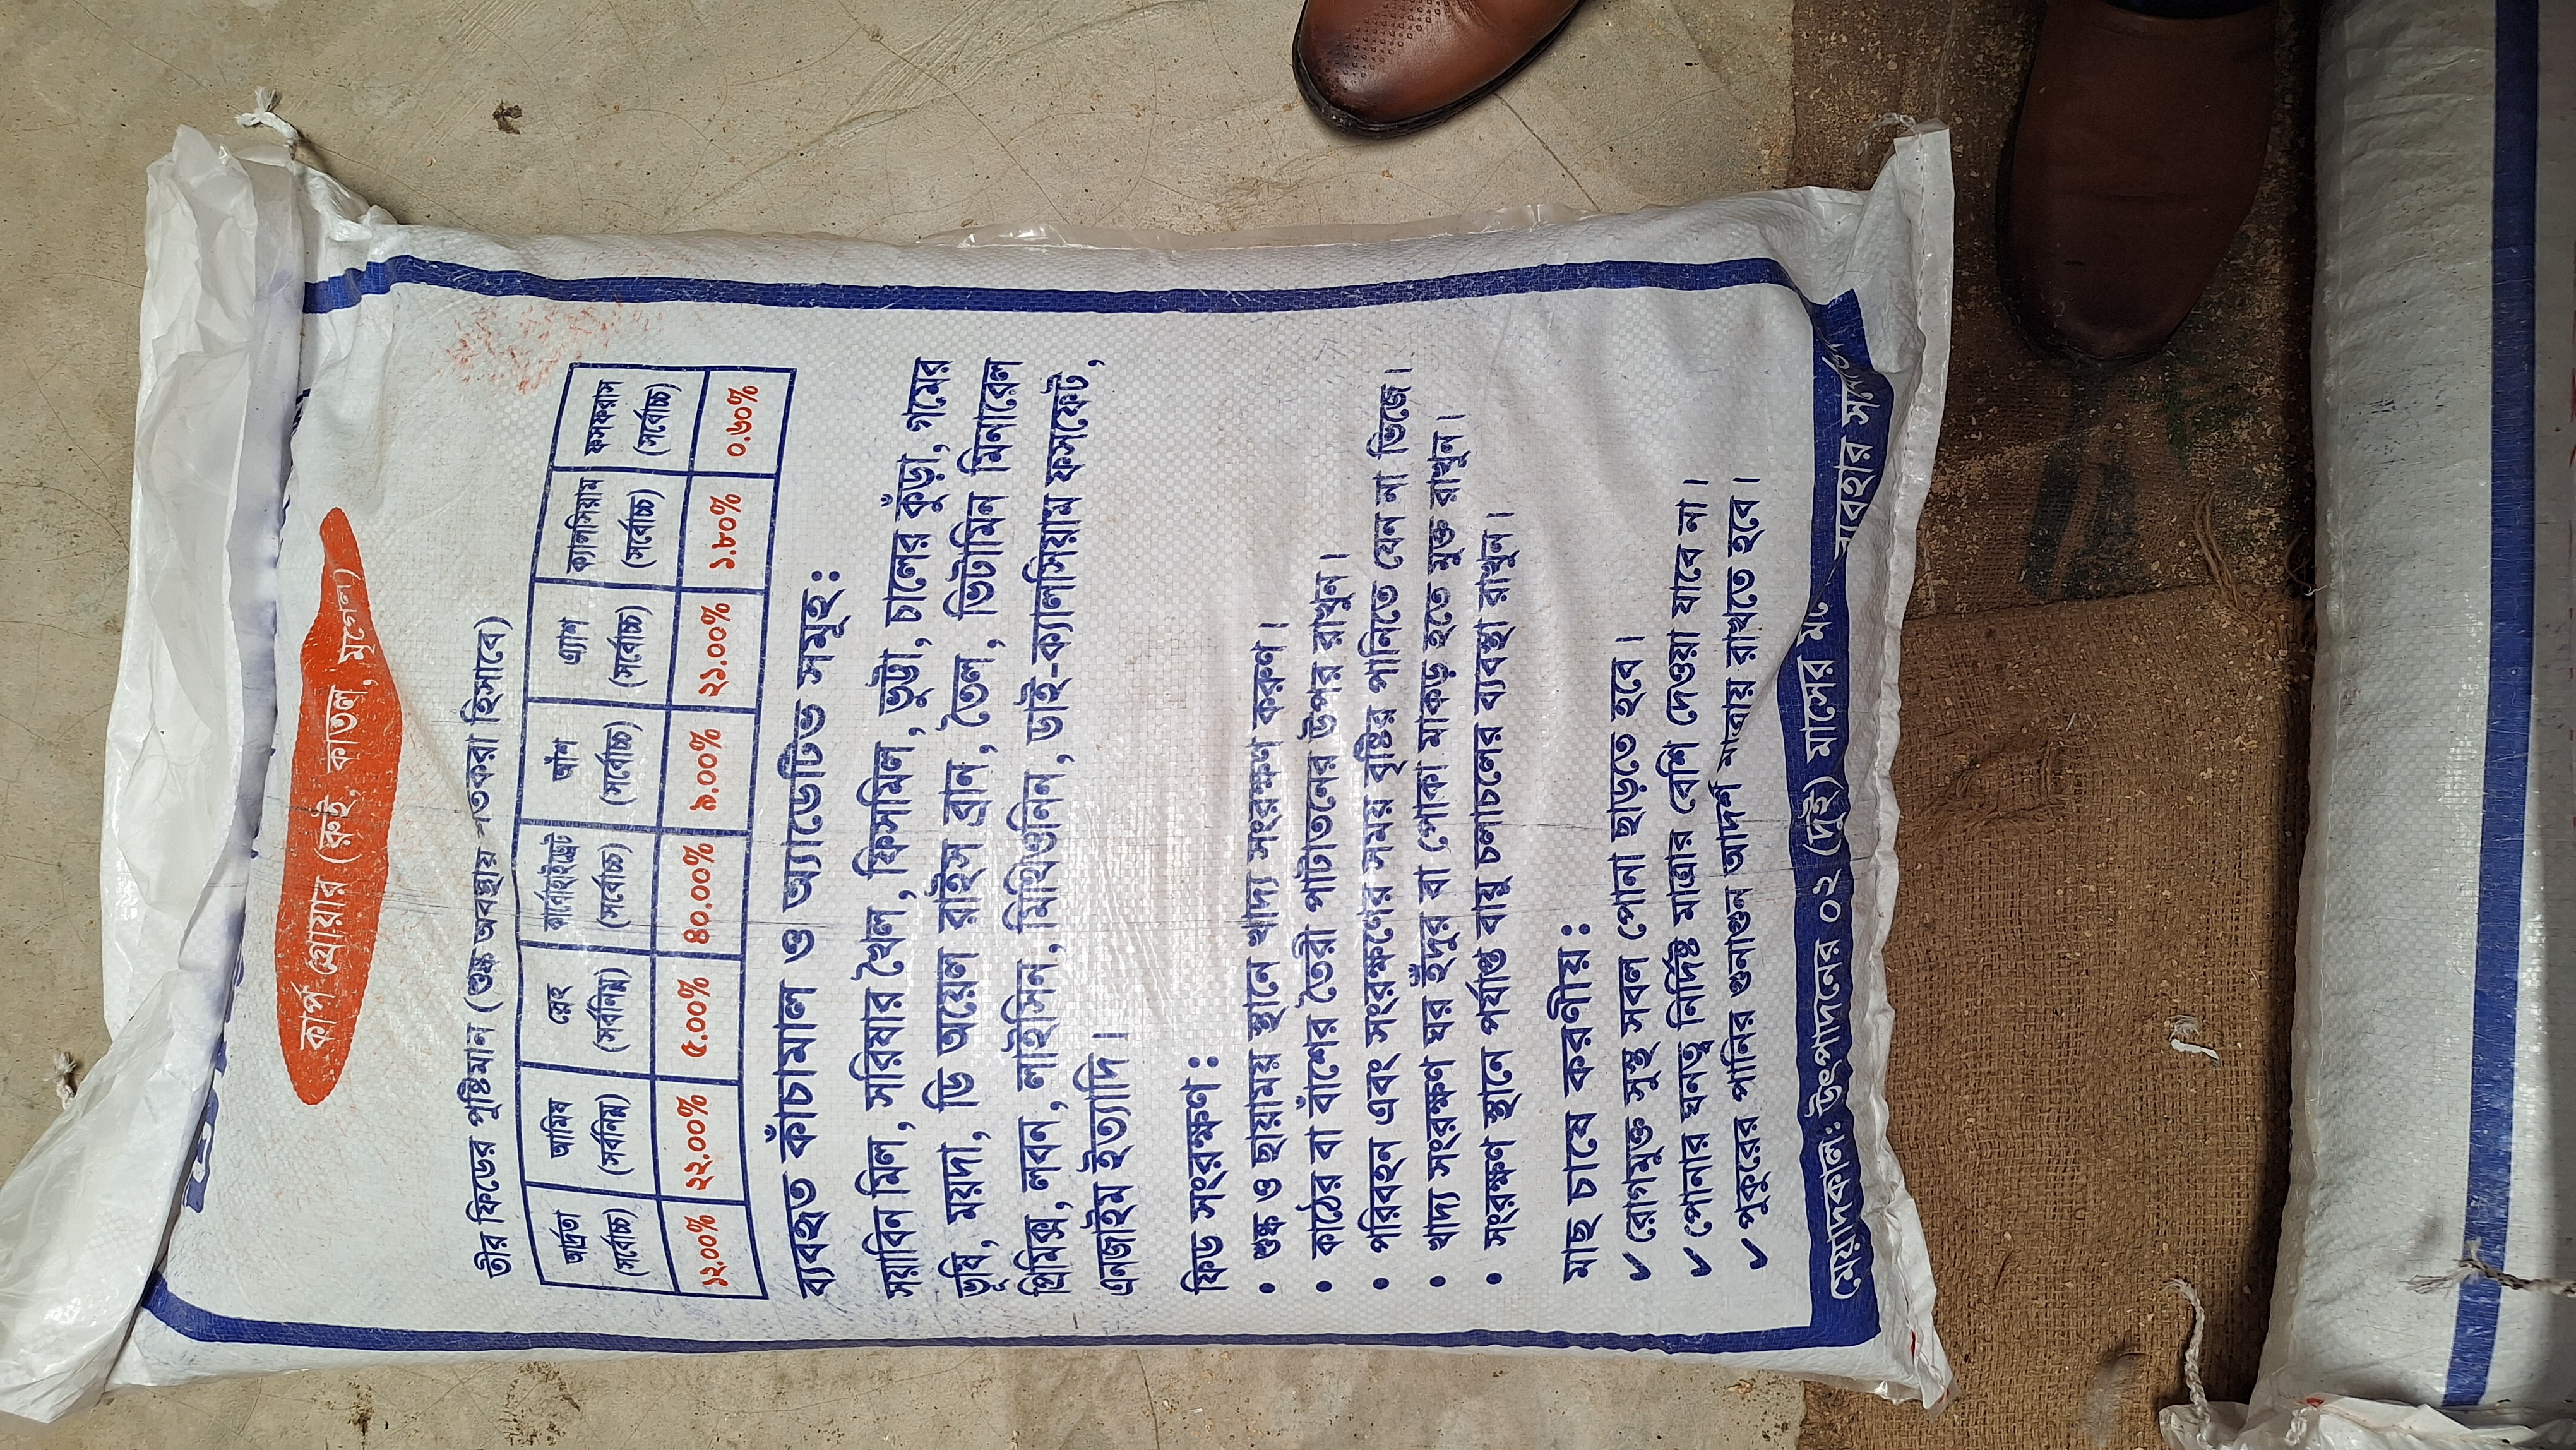 কার্প গ্রোয়ার (রুই, কাতল, মৃগেল)
তীর ফিডের পুষ্টিমান (শুষ্ক অবস্থায় শতকরা হিসাবে)
আর্দ্রতা (সর্বোচ্চ) আমিষ (সর্বনিম্ন) স্নেহ (সর্বনিম্ন) কার্বোহাইড্রেট (সর্বোচ্চ) আঁশ (সর্বোচ্চ) এ্যাশ (সর্বোচ্চ) ক্যালসিয়াম (সর্বোচ্চ) ফসফরাস (সর্বোচ্চ)
১২.০০% ২২.০০% ৫.০০% ৪০.০০% ৯.০০% ২১.০০% ১.৮০% ০.৬০%
ব্যবহৃত কাঁচামাল ও অ্যাডেটিভ সমূহ:
সয়াবিন মিল, সরিষার খৈল, ফিসমিল, ভুট্টা, চালের কুঁড়া, গমের
ভূষি, ময়দা, ডি অয়েল রাইস ব্রান, তৈল, ভিটামিন মিনারেল
প্রিমিক্স, লবন, লাইসিন, মিথিওনিন, ডাই-ক্যালসিয়াম ফসফেট,
এনজাইম ইত্যাদি।
ফিড সংরক্ষণ:
• শুষ্ক ও ছায়াময় স্থানে খাদ্য সংরক্ষণ করুণ।
• কাঠের বা বাঁশের তৈরী পাটাতনের উপর রাখুন।
• পরিবহন এবং সংরক্ষণের সময় বৃষ্টির পানিতে যেন না ভিজে।
• খাদ্য সংরক্ষণ ঘর ইঁদুর বা পোকা মাকড় হতে মুক্ত রাখুন।
• সংরক্ষণ স্থানে পর্যাপ্ত বায়ু চলাচলের ব্যবস্থা রাখুন।
মাছ চাষে করণীয়:
✓ রোগমুক্ত সুস্থ সবল পোনা ছাড়তে হবে।
✓ পোনার ঘনত্ব নির্দিষ্ট মাত্রার বেশি দেওয়া যাবে না।
✓ পুকুরের পানির গুনাগুন আদর্শ মাত্রায় রাখতে হবে।
মেয়াদকাল: উৎপাদনের ০২ (দুই) মাসের ব্যবহার